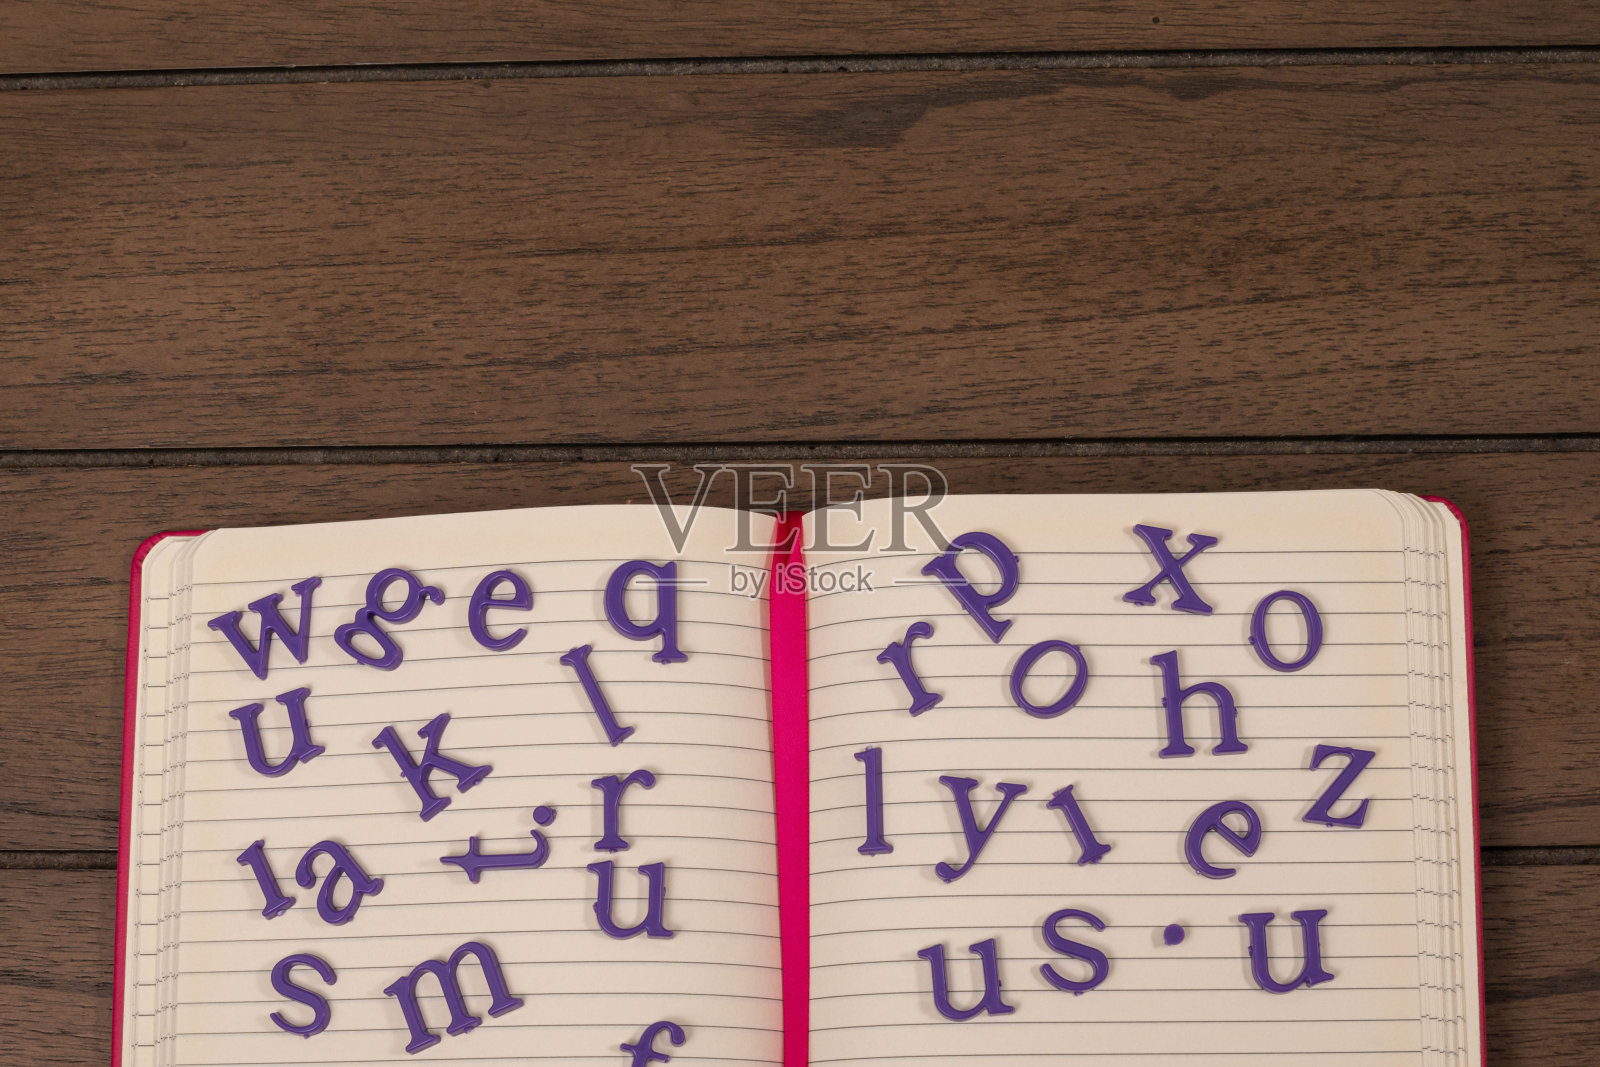 VEER
by iStock
w g e q
u k l
ı a t r
u
s m f
p x o
r o h
l y ı e z
u s . u